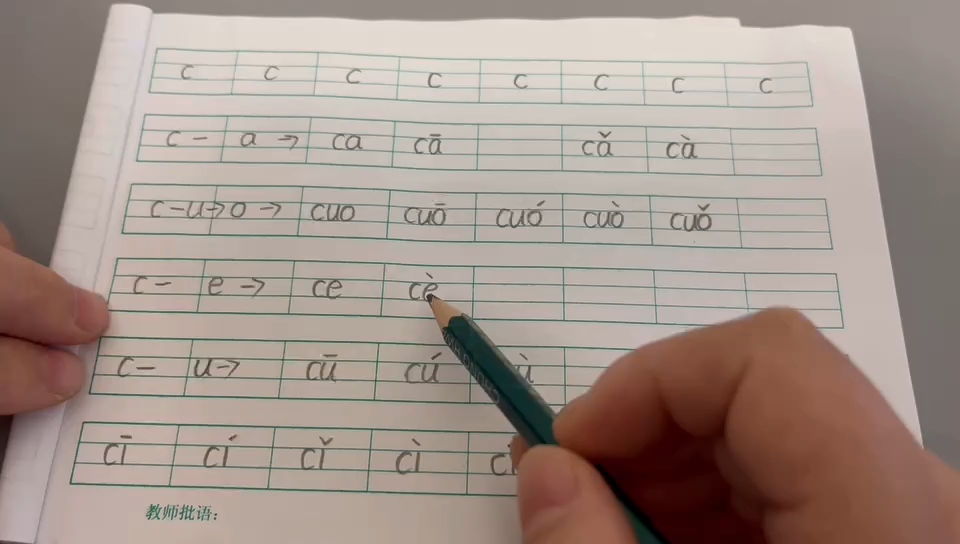 c c c c c c c c
c - a → ca cā cǎ cà
c - u → o → cuo cuō cuó cuò cuǒ
c - e → ce cè
c - u → cū cú
cī cí cǐ cì
教师批语: